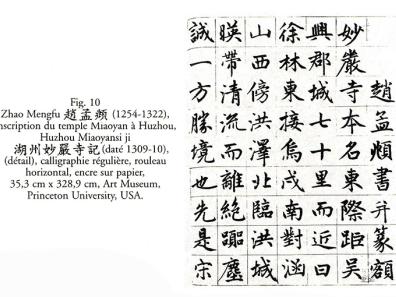 Fig. 10
Zhao Mengfu 趙孟頫 (1254-1322),
nscription du temple Miaoyan à Huzhou,
Huzhou Miaoyansi ji
湖州妙嚴寺記 (daté 1309-10),
(détail), calligraphie régulière, rouleau
horizontal, encre sur papier,
35,3 cm x 328,9 cm, Art Museum,
Princeton University, USA.
趙孟頫書并篆額
妙嚴寺本名東際距吳
興郡城七十里而近曰
徐林東接烏戍南對涵
山西傍洪澤北臨洪城
暎帶清流而離絕囂塵
誠一方勝境也先是宗